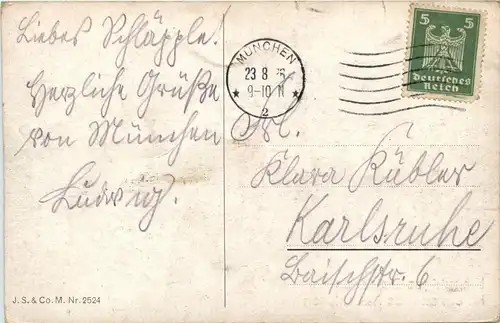 Liebes Schläpple!
Herzliche Grüße
von München
Ludwig.
J. S. & Co. M. Nr. 2524
MÜNCHEN
23 8 26
9-10 N
2
5 5
Deutsches
Reich
Frl.
Klara Kübler
Karlsruhe
Baischstr. 6